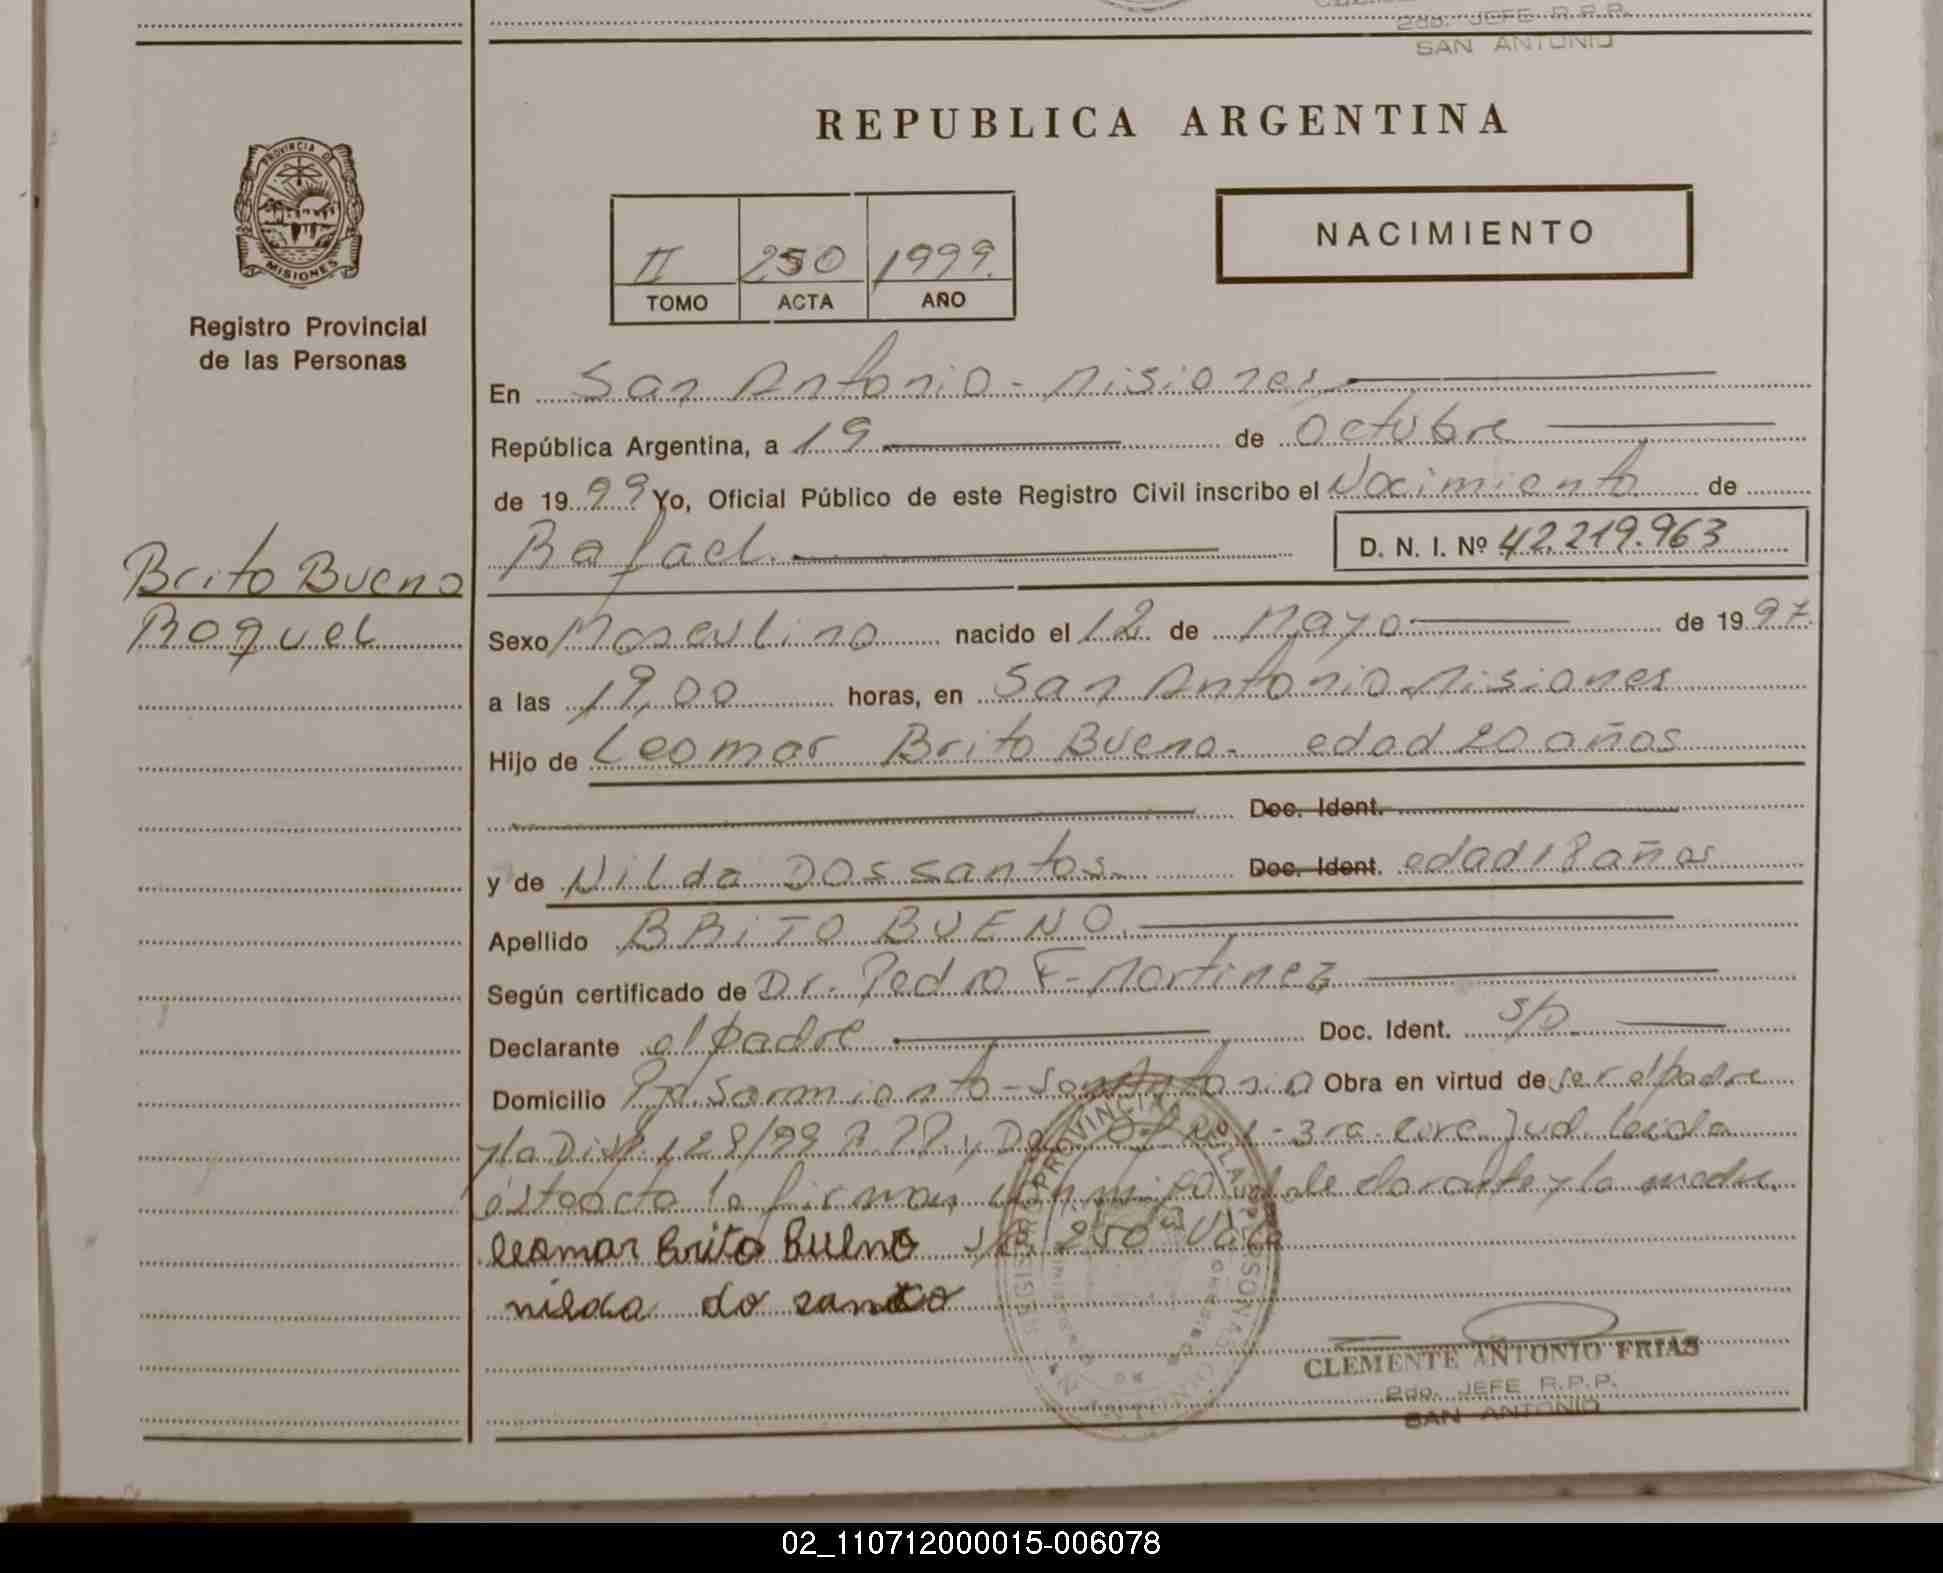 2do. JEFE R.P.P.
SAN ANTONIO
REPUBLICA ARGENTINA
PROVINCIA DE
MISIONES
Registro Provincial
de las Personas
II 250 1999.
TOMO ACTA AÑO
NACIMIENTO
En San Antonio - Misiones
República Argentina, a 19 de Octubre
de 1999 Yo, Oficial Público de este Registro Civil inscribo el Nacimiento de
Rafael. D. N. I. Nº 42.219.963
Brito Bueno
Raquel
Sexo Masculino nacido el 12 de Mayo de 1997
a las 19,00 horas, en San Antonio Misiones
Hijo de Leomar Brito Bueno - edad 20 años
Doc. Ident.
y de Nilda Dos santos. Doc. Ident. edad 18 años
Apellido BRITO BUENO.
Según certificado de Dr. Pedro F. Martinez
Declarante el padre Doc. Ident. s/D.
Domicilio Pje. Sarmiento - San Antonio Obra en virtud de ser el padre
y la Disp. 128/99 R.P.P. y Nº 1 - 3ra. circ. Jud. leida
ésta acta la firman conmigo el declarante y la madre.
leomar Brito Bueno 250 Vale
nilda do santo
CLEMENTE ANTONIO FRIAS
2do. JEFE R.P.P.
SAN ANTONIO
02_110712000015-006078